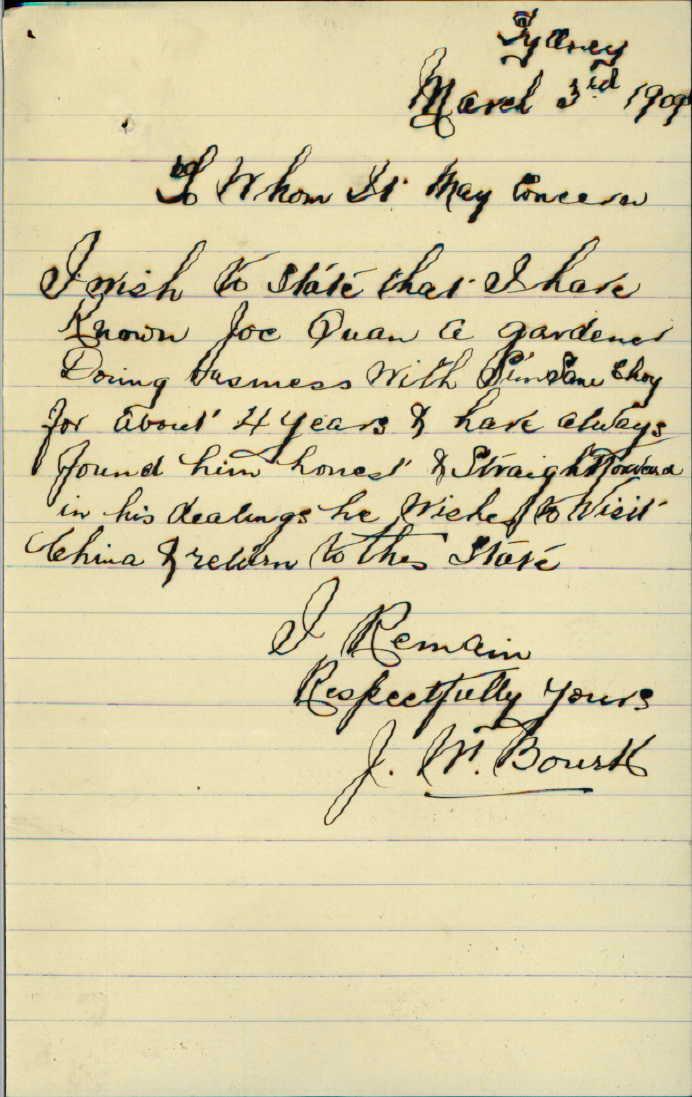 Sydney
March 3rd 1909
To Whom It May Concern
I wish to State that I have
Known Joe Quan a gardener
Doing business With Choy
for about 4 years & have always
found him honest & Straightforward
in his dealings he Wishes to Visit
China & return to this State
I Remain
Respectfully Yours
J. W. Bourk